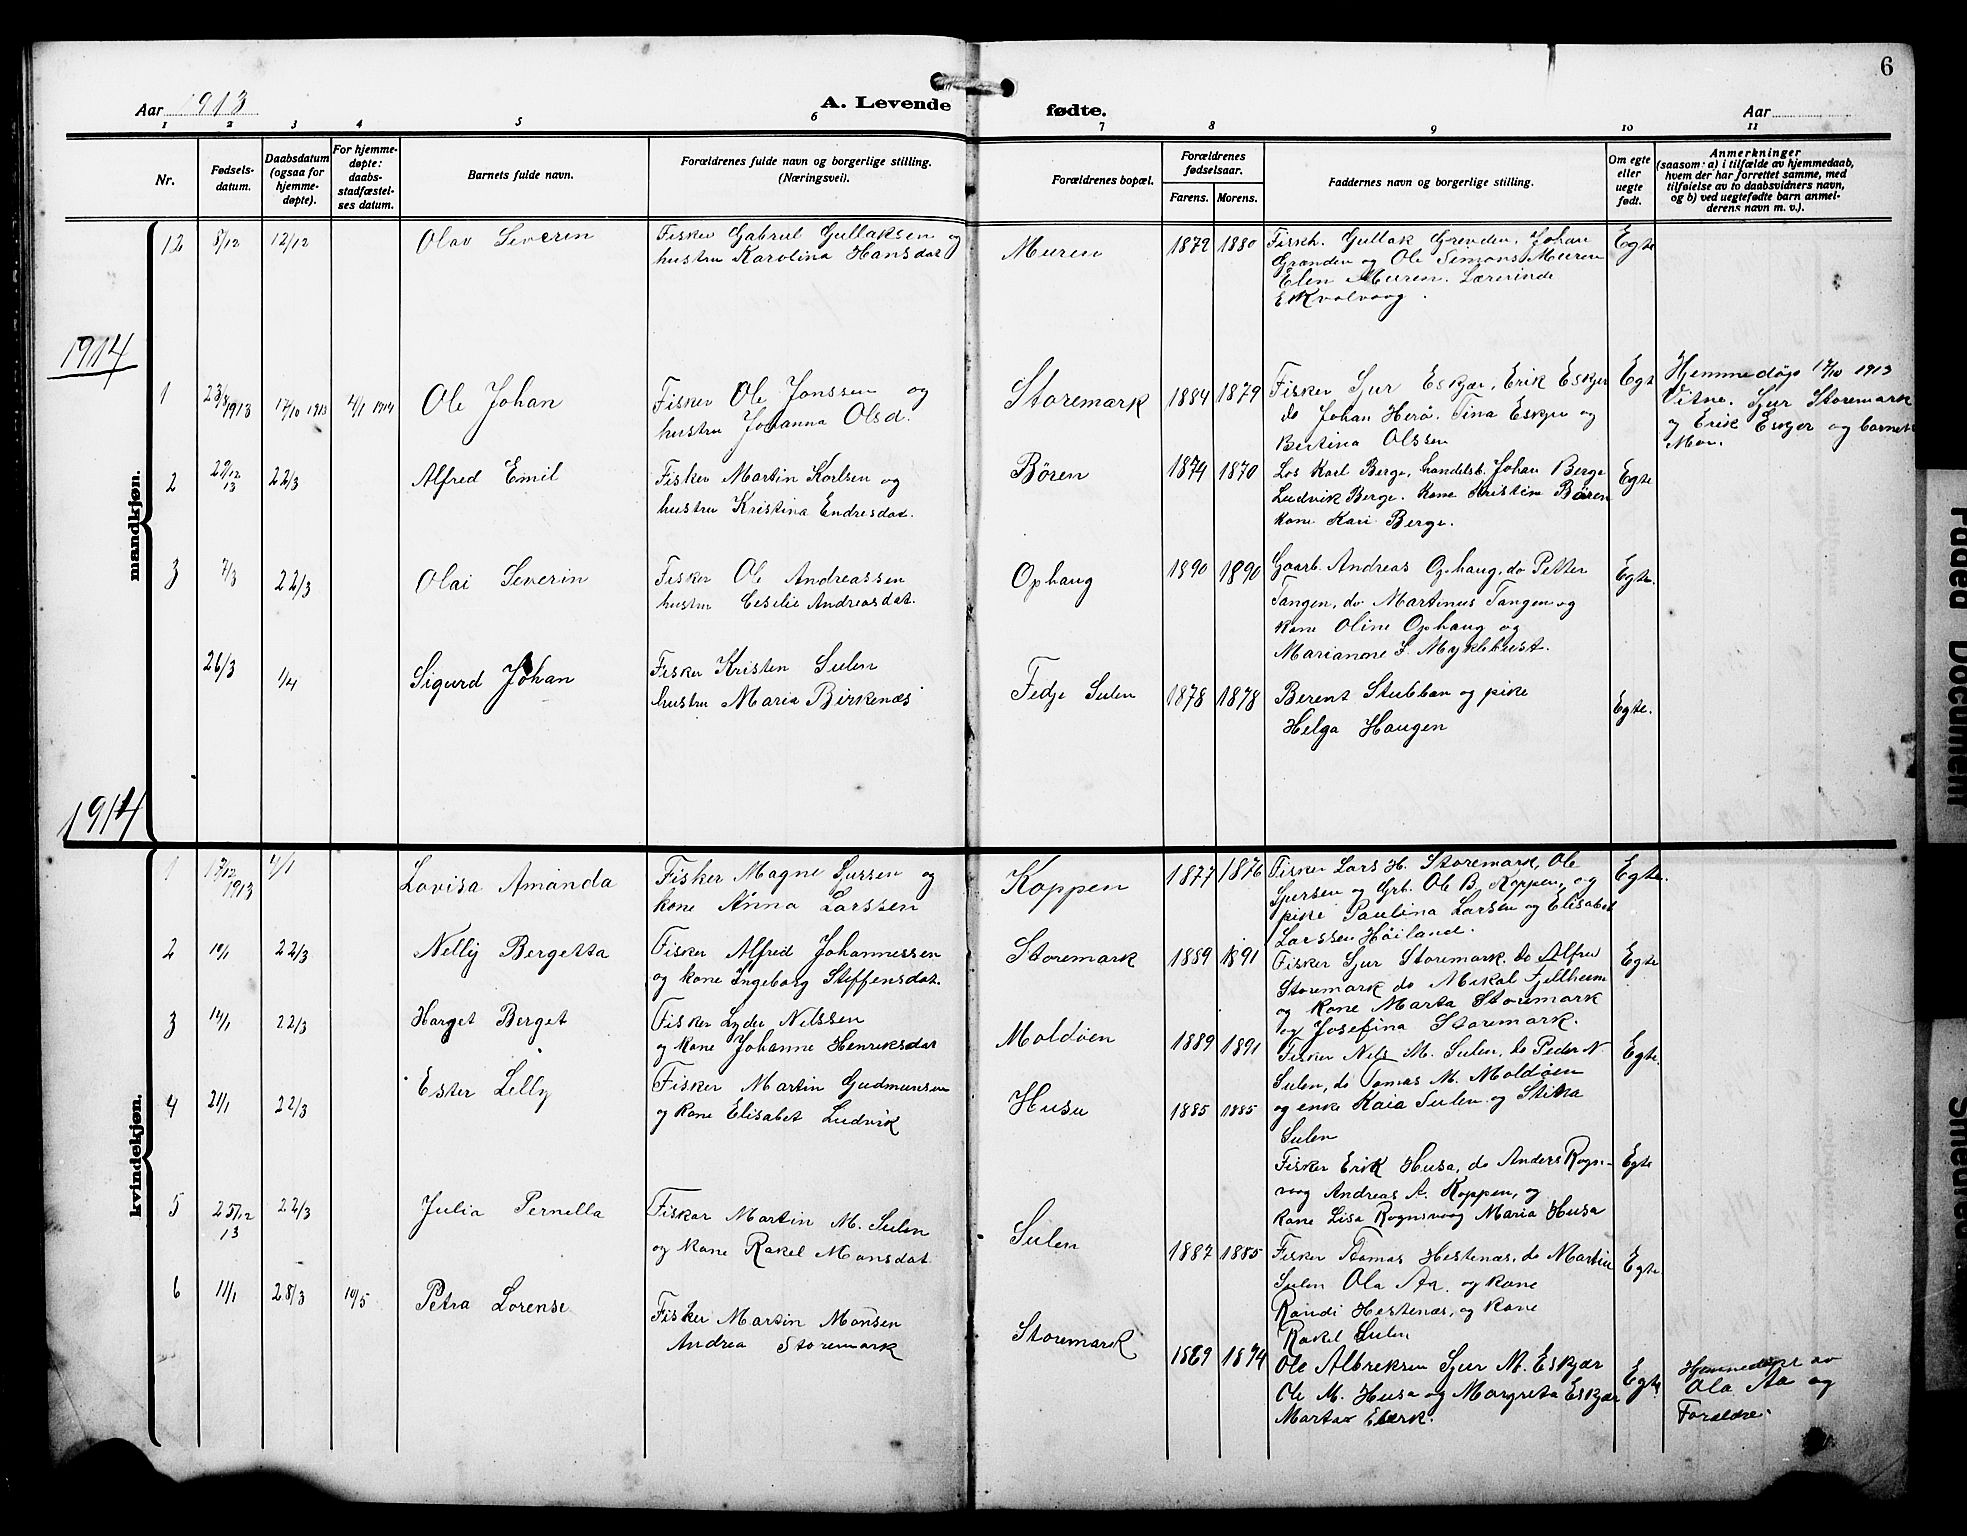 6
Aar 1913
A. Levende
fødte.
Aar
1 2 3 4 5 6 7 8 9 10 11
Nr.
Fødsels-
datum.
Daabsdatum
(ogsaa for
hjemme-
døpte).
For hjemme-
døpte:
daabs-
stadfæstel-
ses datum.
Barnets fulde navn.
Forældrenes fulde navn og borgerlige stilling.
(Næringsvei).
Forældrenes bopæl.
Forældrenes
fødselsaar.
Farens. Morens.
Faddernes navn og borgerlige stilling.
Om egte
eller
uegte
født.
Anmerkninger
(saasom: a) i tilfælde av hjemmedaab,
hvem der har forrettet samme, med
tilføielse av to daabsvidners navn,
og b) ved uegtefødte barn anmel-
derens navn m. v.).
mandkjøn.
12 8/12 12/12 Olav Severin
Fisker Gabriel Gullaksen og
hustru Karolina Hansdat
Muren 1872 1880
Fiskh. Gullak Grenden, Johan
Grænden og Ole Simons Muren
Elen Muren. Lærerinde
E Kvalvaag.
Egte
1914
1 23/8 1913 17/10 1913 4/1 1914 Ole Johan
Fisker Ole Jonssen og
hustru Johanna Olsd.
Storemark 1884 1879
Fisker Sjur Eskjær, Erik Eskjer
do Johan Herö. Tina Eskjer og
Bertina Olssen
Egt
Hemmedøp 17/10 1913
Vitne. Sjur Storemark
og Erik Eskjer og barnets
Mor.
2 29/12 13 22/3 Alfred Emil
Fisker Martin Karlsen og
hustru Kristina Endresdat.
Bören 1874 1870
Los Karl Berge, handelsb. Johan Berge
Ludvik Berge. Kone Kristine Bören
kone Kari Berge.
Egte
3 7/3 22/3 Olai Severin
Fisker Ole Andreassen
hustru Cesilie Andreasdat.
Ophaug 1890 1890
Gaarb. Andreas Ophaug, do Petter
Tangen, do Martinus Tangen og
kone Oline Ophaug og
Marianne S. Myklebust.
Egte.
26/3 1/4 Sigurd Johan
Fisker Kristen Sulen
hustru Maria Birkenæs
Fedje Sulen 1878 1878
Berent Stubban og pike
Helga Haugen
Egte.
1914
kvindekjøn.
1 17/12 1913 4/1 Lovisa Amanda
Fisker Magne Sjursen og
kone Anna Larssen
Koppen 1877 1876
Fisker Lars H. Storemark, Ole
Sjursen og Grb. Ole B. Koppen, og
pike Paulina Larsen og Elisabet
Larssen Höiland.
Egte.
2 10/1 22/3 Nellÿ Bergetta
Fisker Alfred Johannessen
og kone Ingeborg Steffensdat.
Storemark 1889 1891
Fisker Sjur Storemark. do Alfred
Storemark do Mikal Fjellheim
og kone Marta Storemark
og Josefina Storemark.
Egte
3 14/1 22/3 Harget Berget
Fisker Lyder Nilssen
og kone Johanne Henriksdat
Moldöen 1889 1891
Fisker Nils M. Sulen, do Peder N.
Sulen, do Tomas M. Moldøen
og enke Kaia Sulen og Stina
Sulen
Egte.
4 21/1 22/3 Ester Lilly
Fisker Martin Gudmunsen
og kone Elisabet Ludvik
Husu 1885 1885
Fisker Erik Husa, do Anders Rogn-
vaag Andreas A. Koppen, og
kone Lisa Rognsvaag Maria Husa
Egte
5 25/12 13 22/3 Julia Pernella
Fisker Martin M. Sulen
og kone Rakel Monsdat.
Sulen 1887 1885
Fisker Tomas Hestenæs, do Martin
Sulen Ola Aa. og kone
Randi Hestenæs, og kone
Rakel Sulen
Egte
6 11/1 28/3 10/5 Petra Lorense
Fisker Martin Monsen
Andrea Storemark
Storemark 1869 1874
Ole Albreksen Sjur M. Eskjær
Ole M. Husa og Margreta Eskjær
Egte
Hemmedøpt av
Ola Aa og
Forældre.
Faded Document